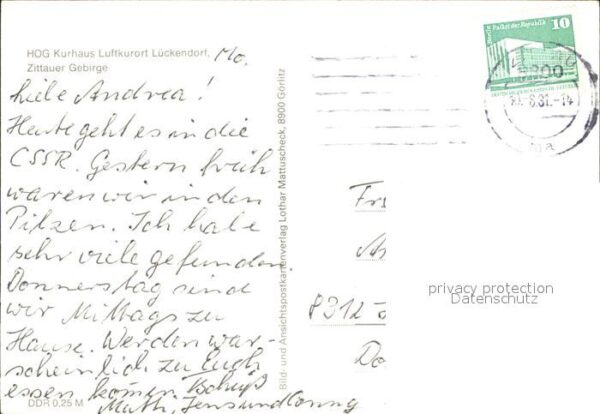 HOG Kurhaus Luftkurort Lückendorf, Mo.
Zittauer Gebirge
Liebe Andrea!
Heute geht es in die
CSSR. Gestern früh
waren wir in den
Pilzen. Ich habe
sehr viele gefunden.
Donnerstag sind
wir Mittags zu
Hause. Werden war-
scheinlich zu Euch
essen kommen. Tschüß
Mutti, Jens und Conny
DDR 0,25 M
Bild- und Ansichtspostkartenverlag Lothar Mattuscheck, 8900 Görlitz
Berlin Palast der Republik 10
8312
privacy protection
Datenschutz